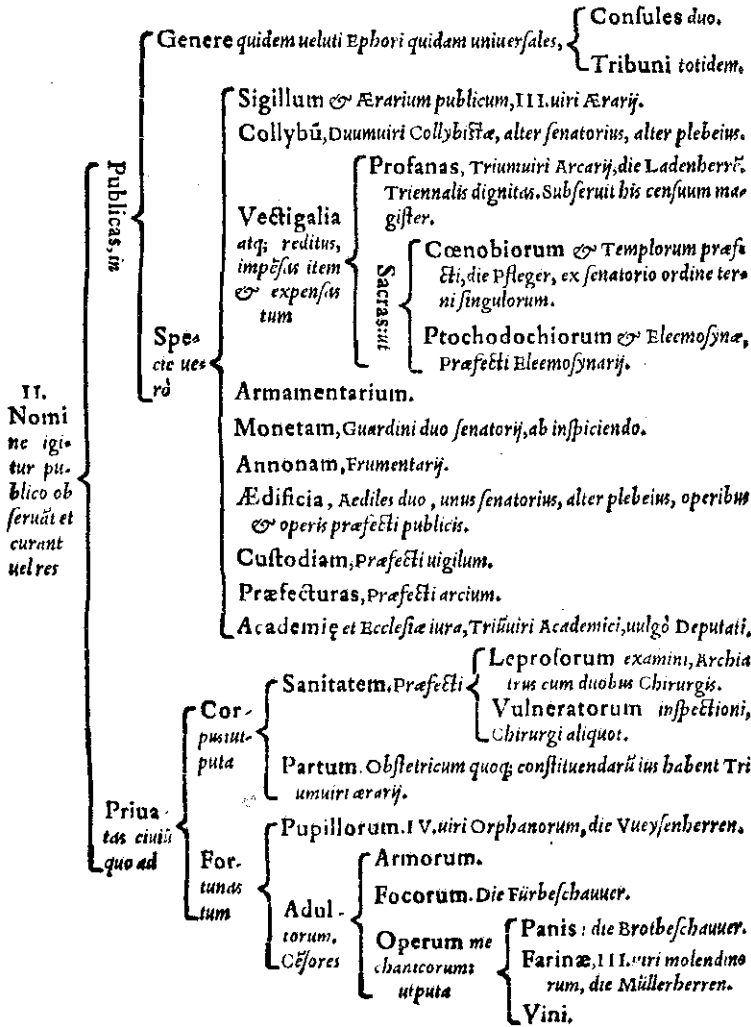 Genere quidem ueluti Ephori quidam uniuerſales,
Conſules duo.
Tribuni totidem.
II.
Nomi
ne igi-
tur pu-
blico ob
ſeruāt et
curant
uel res
Publicas, in
Spe-
cie ue-
rò
Sigillum & Ærarium publicum, III. uiri Ærarij.
Collybū, Duumuiri Collybiſtæ, alter ſenatorius, alter plebeius.
Vectigalia
atq; reditus,
impēſas item
& expenſas
tum
Profanas, Triumuiri Arcarij, die Ladenherrē.
Triennalis dignitas. Subſeruit his cenſuum ma-
giſter.
Sacras: ut
Cœnobiorum & Templorum præfe
cti, die Pfleger, ex ſenatorio ordine ter-
ni ſingulorum.
Ptochodochiorum & Eleemoſynæ,
Præfecti Eleemoſynarij.
Armamentarium.
Monetam, Guardini duo ſenatorij, ab inſpiciendo.
Annonam, Frumentarij.
Ædificia, Aediles duo, unus ſenatorius, alter plebeius, operibus
& operis præfecti publicis.
Cuſtodiam, Præfecti uigilum.
Præfecturas, Præfecti arcium.
Academię et Eccleſiæ iura, Triūuiri Academici, uulgò Deputati.
Priua-
tas ciuiū
quo ad
Cor-
pus ut-
puta
Sanitatem. Præfecti
Leproſorum examini, Archia
trus cum duobus Chirurgis.
Vulneratorum inſpectioni,
Chirurgi aliquot.
Partum. Obſtetricum quoq; conſtituendarū ius habent Tri
umuiri ærarij.
For-
tunas
tum
Pupillorum. IV. uiri Orphanorum, die Vueyſenherren.
Adul-
torum.
Cēſores
Armorum.
Focorum. Die Fürbeſchauuer.
Operum me
chanicorum:
utputa
Panis: die Brotbeſchauuer.
Farinæ, III. uiri molendino
rum, die Müllerherren.
Vini.